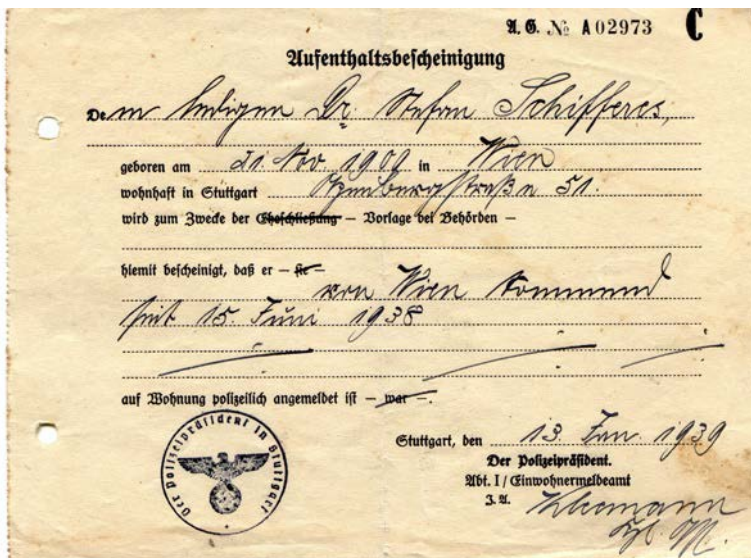 A. G. № A 02973 C
Aufenthaltsbescheinigung
Dem ledigen Dr. Stefan Schifferes,
geboren am 21. Nov 1909 in Wien
wohnhaft in Stuttgart 51.
wird zum Zwecke der Eheschließung – Vorlage bei Behörden –
hiemit bescheinigt, daß er – sie –
von Wien kommend
seit 15. Juni 1938
auf Wohnung polizeilich angemeldet ist – war –.
Der Polizeipräsident in Stuttgart
Stuttgart, den 13. Jan. 1939
Der Polizeipräsident.
Abt. I / Einwohnermeldeamt
J. A.